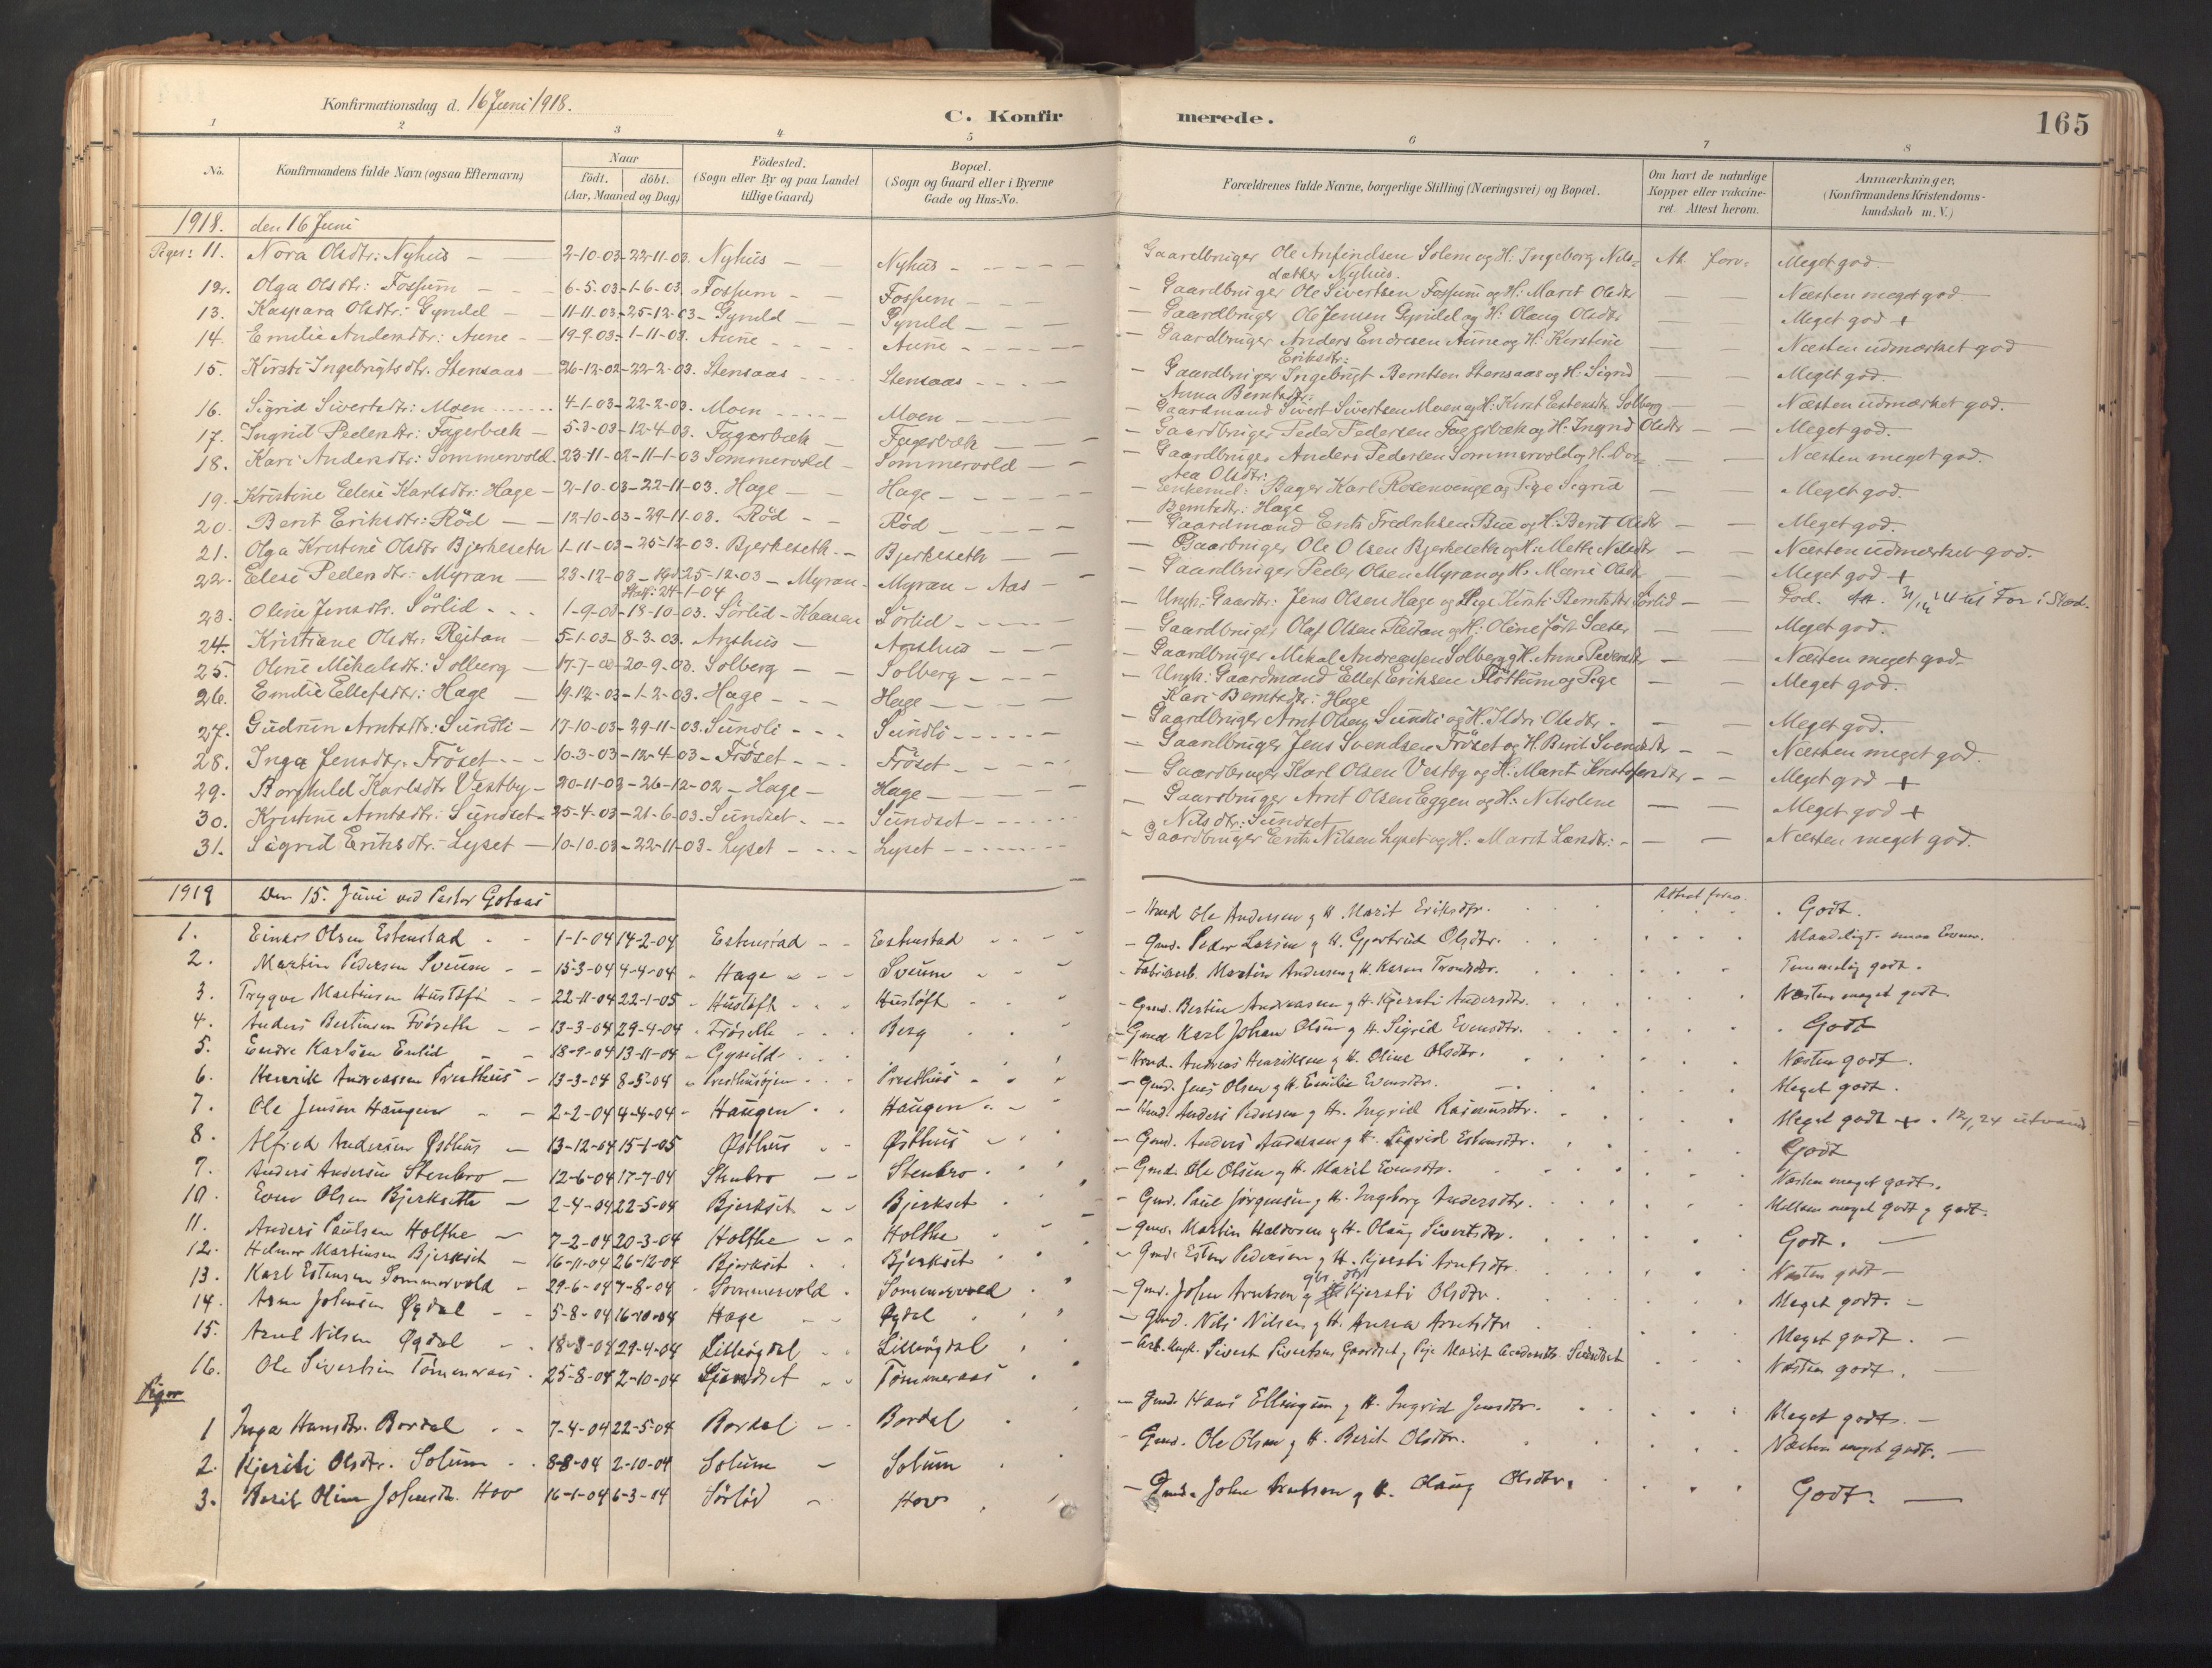 Konfirmationsdag d. 16 Juni 1918.
C. Konfirmerede.
165
1 2 3 4 5 6 7 8
No. Konfirmandens fulde Navn (ogsaa Efternavn) Naar født. døbt. (Aar, Maaned og Dag) Fødested. (Sogn eller By og paa Landet tillige Gaard) Bopæl. (Sogn og Gaard eller i Byerne Gade og Hus-No. Forældrenes fulde Navne, borgerlige Stilling (Næringsvei) og Bopæl. Om havt de naturlige Kopper eller vaccineret. Attest herom. Anmærkninger. (Konfirmandens Kristendomskundskab m. V.)
1918. den 16 Juni
Piger: 11. Nora Olsdtr: Nyhus — 2-10-03-22-11-03. Nyhus — Nyhus — Gaardbruger Ole Anfindsen Solem og H: Ingeborg Nils=datter Nyhus. At. forv. Meget god.
12. Olga Olsdtr: Fossum — 6-5-03-1-6-03. Fossum — Fossum — Gaardbruger Ole Sivertsen Fossum og H: Marit Olsdtr — Næsten meget god.
13. Kaspara Olsdtr: Gynild — 11-11-03-25-12-03 — Gynild — Gynild — Gaardbruger Ole Jensen Gynild og H: Olaug Olsdtr — Meget god +
14. Emilie Andersdtr: Aune — 19-9-03-1-11-03. Aune — Aune — Gaardbruger Anders Endresen Aune og H: Kirstine Eriksdtr: — Næsten udmærket god
15. Kirsti Ingebrigtsdtr. Stensaas — 26-12-02-22-2-03. Stensaas — Stensaas — Gaardbruger Ingebrigt Berntsen Stensaas og H: Sigrid Anna Berntsdtr: — Meget god.
16. Sigrid Sivertsdtr: Moen — 4-1-03-22-2-03. Moen — Moen — Gaardmand Sivert Sivertsen Moen og H: Kirst Estensdtr Solberg — Næsten udmærket god.
17. Ingrid Pedersdtr: Fagerbæk — 5-3-03-12-4-03. Fagerbæk — Fagerbæk — Gaardbruger Peder Pedersen Fagerbæk og H: Ingrid Olsdtr — Meget god.
18. Kari Andersdtr: Sommervold. 23-11-02-11-1-03 Sommervold — Sommervold — Gaardbruger Anders Pedersen Sommervold og H. Dor=tea Olsdtr: — Næsten meget god.
19. Kristine Elise Karlsdtr: Hage — 2-10-03-22-11-03. Hage — Hage — Enkemd: Bager Karl Rosenvenge og Pige Sigrid Berntsdtr: Hage — Meget god.
20. Berit Eriksdtr: Rød — 12-10-03-29-11-03. Rød — Rød — Gaardmand Erik Fredriksen Bue og H: Berit Olsdtr — Meget god.
21. Olga Kristine Olsdtr Bjerkeseth 1-11-03-25-12-03. Bjerkeseth — Bjerkeseth — Gaarbruger Ole Olsen Bjerkeseth og H: Mette Nilsdtr — Næsten udmærket god.
22. Elise Pedersdtr: Myran — 23-12-03 — Hjd: 25-12-03 — Myran — Myran — Aas — Gaardbruger Peder Olsen Myran og H: Marie Olsdtr — Meget god +
24-1-04
23. Oline Jensdtr. Sørlid — 1-9-03-18-10-03. Sørlid — Haasen Sørlid — Ungk: Gaardbr: Jens Olsen Hage og Pige Kirsti Berntsdtr Sørlid — God.
24. Kristiane Olsdtr: Reitan — 5-1-03-8-3-03. Aashus — Aashus — Gaardbruger Olaf Olsen Reitan og H: Oline født Sæter — Meget god.
25. Oline Mikalsdtr: Solberg — 17-7-03-20-9-03. Solberg — Solberg — Gaardbruger Mikal Andreassen Solberg og H. Anne Pedersdtr — Næsten meget god.
26. Emilie Ellefsdtr: Hage — 19-12-03-1-2-03. Hage — Hage — Ungk: Gaardmand Ellef Eriksen Fløttum og Pige Kari Berntsdtr: Hage — Meget god.
27. Gudrun Arntsdtr: Sundli — 17-10-03-29-11-03. Sundli — Sundli — Gaardbruger Arnt Olsen Sundli og H. Ildri Olsdtr — Meget god.
28. Inga Jensdtr. Frøset — 10-3-03-12-4-03 — Frøset — Frøset — Gaardbruger Jens Svendsen Frøset og H. Berit Svendsdtr — Næsten meget god.
29. Borghild Karlsdtr Vestby — 20-11-03-26-12-02 — Hage — Hage — Gaardbruger Karl Olsen Vestby og H: Marit Kristofersdtr — Meget god +
30. Kristine Arntsdtr: Sundset — 25-4-03-21-6-03. Sundset — Sundset — Gaardbruger Arnt Olsen Eggen og H: Nikoline Nilsdtr: Sundset — Meget god +
31. Sigrid Eriksdtr. Lyset — 10-10-03-22-11-03 — Lyset — Lyset — Gaardbruger Erik Nilsen Lyset og H: Marit Larsdtr: — Næsten meget god.
1919 Den 15. Juni ved Pastor Gotaas Attest forev.
1. Einar Olsen Estenstad 1-1-04 14-2-04 Estenstad Estenstad Hmd Ole Andersen og H. Marit Eriksdtr. Godt.
2. Martin Pedersen Sveum 15-3-04 4-4-04 Hage Sveum Gmd. Peder Larsen og H. Gjertrud Olsdtr. Maadeligt. smaa Evner.
3. Trygve Martinsen Hustøft 22-11-04 22-1-05 Hustøft Hustøft Fabrikarb. Martin Andersen og H. Karen Trondsdtr. Temmelig godt.
4. Anders Bertinsen Frøseth 13-3-04 29-4-04 Frøseth Berg Gmd. Bertin Andreasen og H. Kjersti Andersdtr. Næsten meget godt
5. Endre Karlsen Enlid 18-9-04 13-11-04 Gynild Gmd Karl Johan Olsen og H. Sigrid Evensdtr. Godt
6. Henrik Andreassen Presthus 13-3-04 8-5-04 Presthusøien Presthus Hmd. Andreas Henriksen og H. Oline Olsdtr. Næsten godt.
7. Ole Jensen Haugen 2-2-04 4-4-04 Haugen Haugen Gmd. Jens Olsen og H. Emilie Evensdtr. Meget godt.
8. Alfred Andersen Østhus 13-12-04 15-1-05 Østhus Østhus Hmd. Anders Pedersen og H. Ingrid Rasmusdtr. Meget godt +. 12/24 utvand.
9. Anders Andersen Stenbro 12-6-04 17-7-04 Stenbro Stenbro Gmd. Anders Andersen og H. Sigrid Estensdtr. Godt
10. Even Olsen Bjerkseth 2-4-04 22-5-04 Bjerkset Bjerkset Gmd. Ole Olsen og H. Marit Evensdtr. Næsten meget godt.
11. Anders Paulsen Holthe 7-2-04 20-3-04 Holthe Holthe Gmd. Paul Jørgensen og H. Ingeborg Andersdtr. Mellem meget godt og godt.
12. Helmer Martinsen Bjerkset 16-11-04 26-12-04 Bjerkset Bjerkset Gmd. Martin Haldorsen og H. Olaug Sivertsdtr. Godt.
13. Karl Estensen Sommervold 29-6-04 7-8-04 Sommervold Sommervold Gmd. Esten Pedersen og H. Kjersti Arntsdtr. Næsten godt
14. Arne Johnsen Øgdal 5-8-04 16-10-04 Hage Øgdal Gmd. John Arntsen og Kjersti Olsdtr. Meget godt.
15. Arnt Nilsen Øgdal 18-3-04 29-4-04 Lilleøgdal Lilleøgdal Gmd. Nils Nilsen og H. Anna Arntsdtr Meget godt.
16. Ole Sivertsen Tømmeraas 25-8-04 2-10-04 Tømmeraas Arb. Ungk. Sivert Sivertsen og Pige Marit Næsten godt.
Piger
1 Inga Hansdtr. Bordal 7-4-04 22-5-04 Bordal Bordal Gmd. Hans Ellingsen og H. Ingrid Jensdtr. Meget godt.
2. Kjersti Olsdtr. Solum 8-8-04 2-10-04 Solum Solum Gmd. Ole Olsen og H. Berit Olsdtr. Næsten meget godt.
3. Berit Oline Johnsdtr. Hov 16-1-04 6-3-04 Sørlid Hov Gmd. John Arntsen og H. Olaug Olsdtr. Godt.